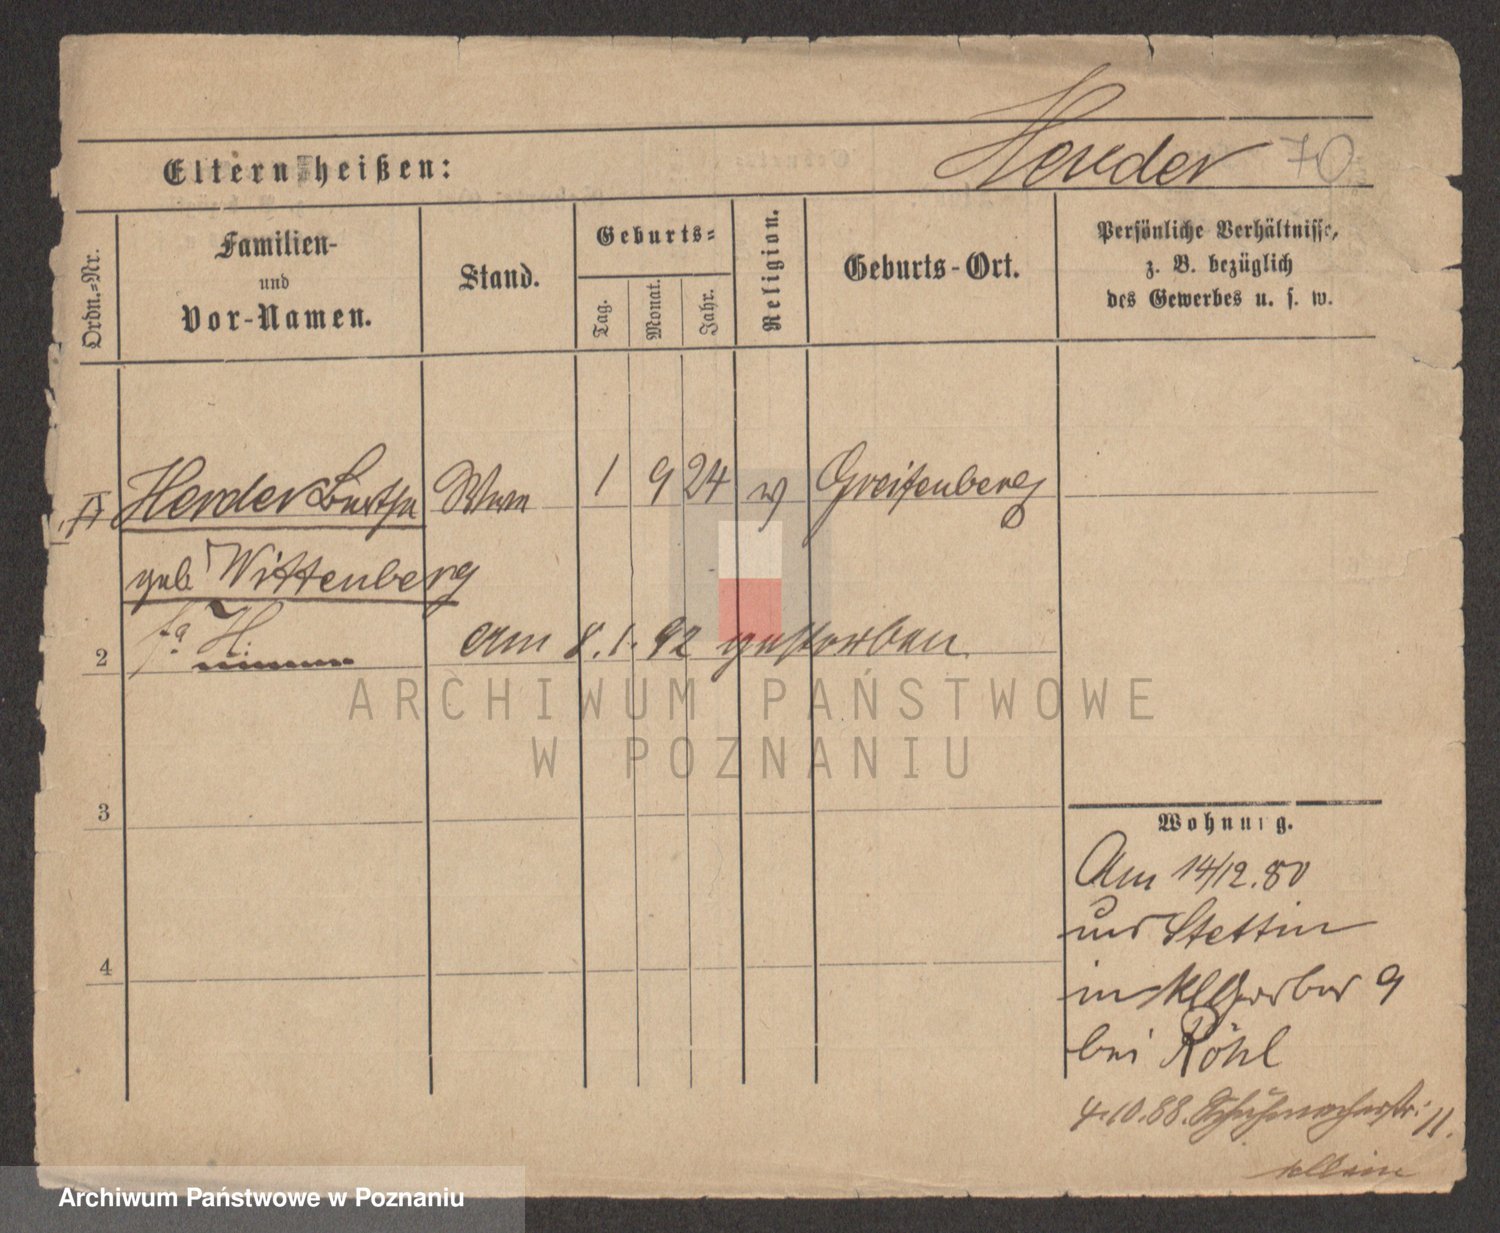 Herder 70
Eltern heißen:
Ordn.=Nr.
Familien-
und
Vor-Namen.
Stand.
Geburts=
Tag.
Monat.
Jahr.
Religion.
Geburts-Ort.
Persönliche Verhältnisse,
z. B. bezüglich
des Gewerbes u. s. w.
Herder Bertha Wwe 1 9 24 Greifenberg
geb Wittenberg
2 H. am 8.1.92 gestorben
ARCHIWUM PAŃSTWOWE
W POZNANIU
3
Wohnung.
Am 14/12.80
aus Stettin
in Kl Gerber 9
bei Röhl
4
4.10.88. Schuhmacherstr. 11.
allein
Archiwum Państwowe w Poznaniu